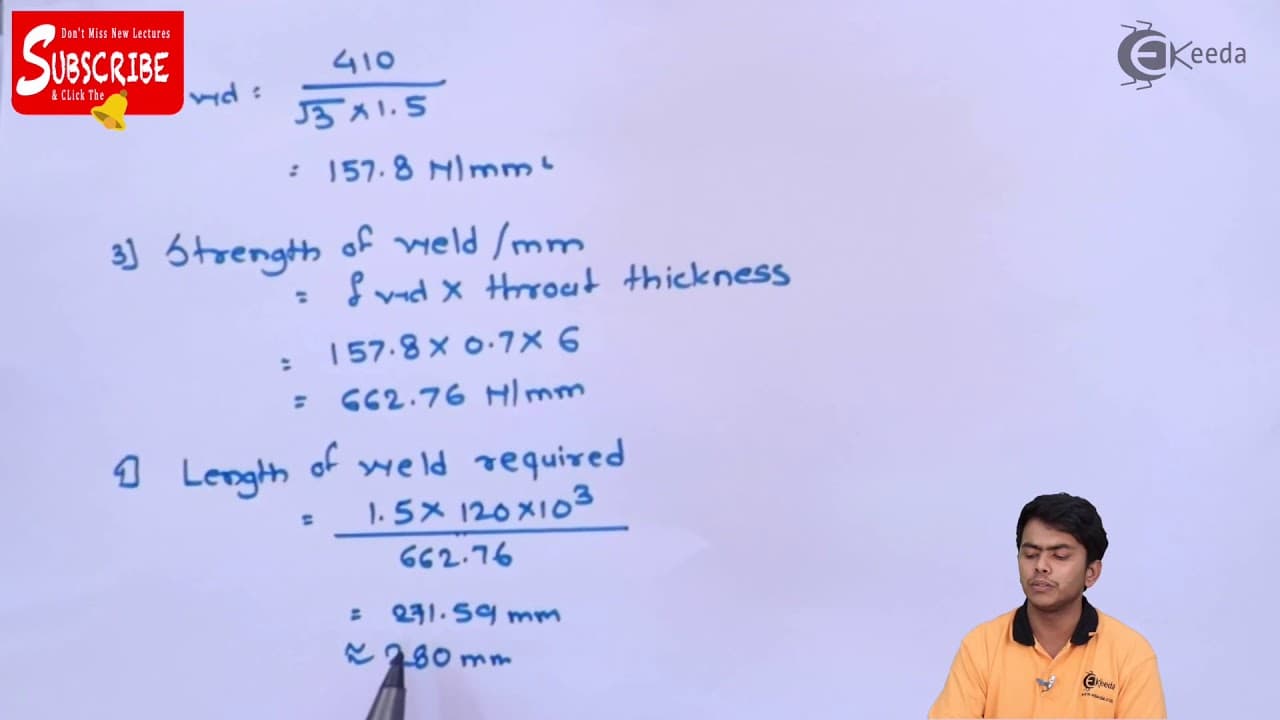 Don't Miss New Lectures
SUBSCRIBE
& CLick The
Keeda
wd = 410 / √3 × 1.5
= 157.8 N/mm²
3] Strength of weld/mm
= fwd × throat thickness
= 157.8 × 0.7 × 6
= 662.76 N/mm
4] Length of weld required
= 1.5 × 120 × 10³ / 662.76
= 271.59 mm
≈ 280 mm
EKeeda